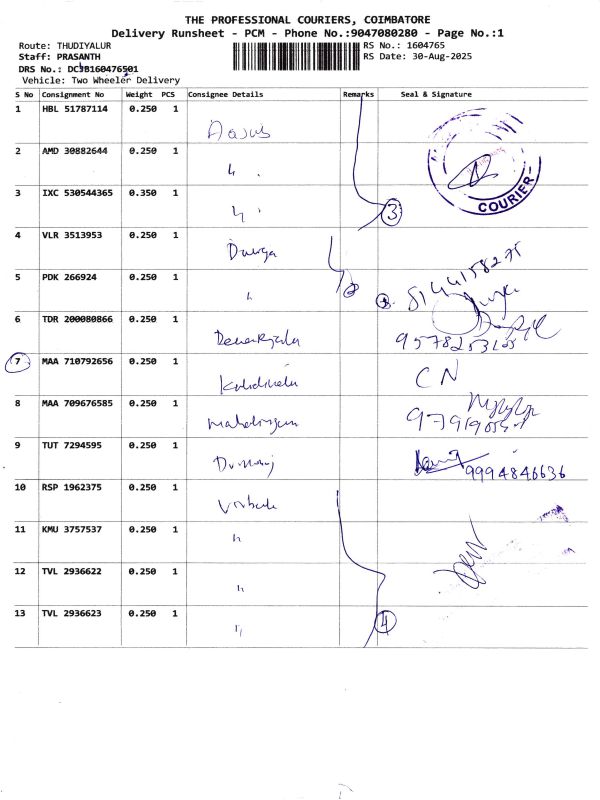 THE PROFESSIONAL COURIERS, COIMBATORE
Delivery Runsheet - PCM - Phone No.:9047080280 - Page No.:1
Route: THUDIYALUR RS No.: 1604765
Staff: PRASANTH RS Date: 30-Aug-2025
DRS No.: DC3B160476501
Vehicle: Two Wheeler Delivery
S No Consignment No Weight PCS Consignee Details Remarks Seal & Signature
1 HBL 51787114 0.250 1
2 AMD 30882644 0.250 1
3 IXC 530544365 0.350 1 3
COURIER
4 VLR 3513953 0.250 1 Durga
5 PDK 266924 0.250 1 2 8144158275
6 TDR 200080866 0.250 1
7 MAA 710792656 0.250 1 CN
8 MAA 709676585 0.250 1
9 TUT 7294595 0.250 1 9994846636
10 RSP 1962375 0.250 1
11 KMU 3757537 0.250 1
12 TVL 2936622 0.250 1
13 TVL 2936623 0.250 1 4